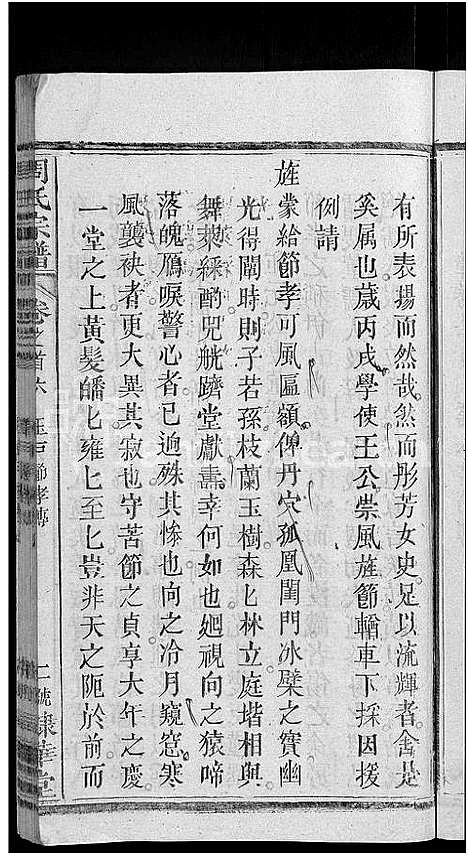 有所表揚而然哉然而彤芳女史足以流輝者舍是
奚属也歲丙戌學使王公崇風旌節輶車下採因援
例請
旌蒙給節孝可風匾額俾丹穴孤凰閨門冰檗之寳幽
光得闡時則子若孫枝蘭玉樹森匕林立庭堦相與
舞萊綵酌兕觥躋堂獻壽幸何如也廻視向之猿啼
落魄鴈唳警心者已逈殊其慘也向之冷月窺窓寒
風襲袂者更大異其寂也守苦節之貞享大年之慶
一堂之上黃髮皤匕雍匕至匕豈非天之阨於前而
周氏宗譜 卷之首六 節孝傳 二號